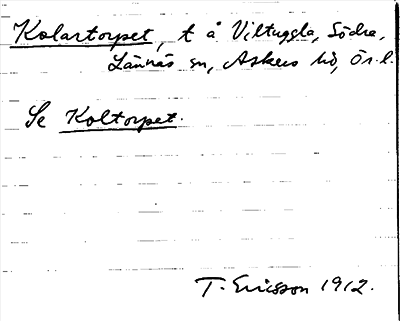 Kolartorpet, t å Viltuggla, Södra,
Lännäs sn, Askers hd, Ör. l.
Se Koltorpet.
T. Ericsson 1912.